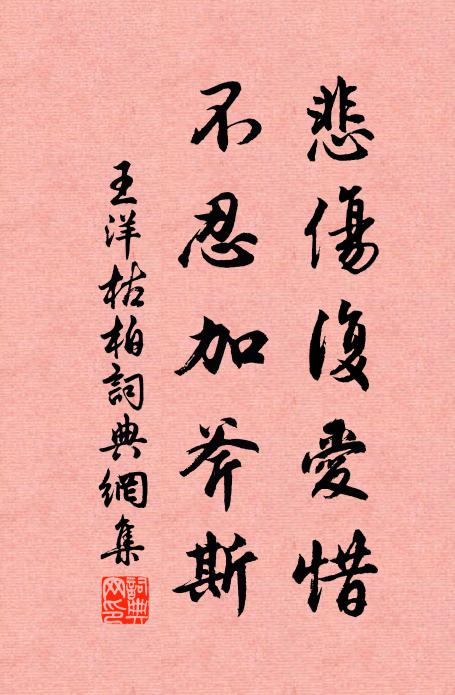 悲傷復愛惜
不忍加斧斯
王洋枯柏詞典網集
詞典網印